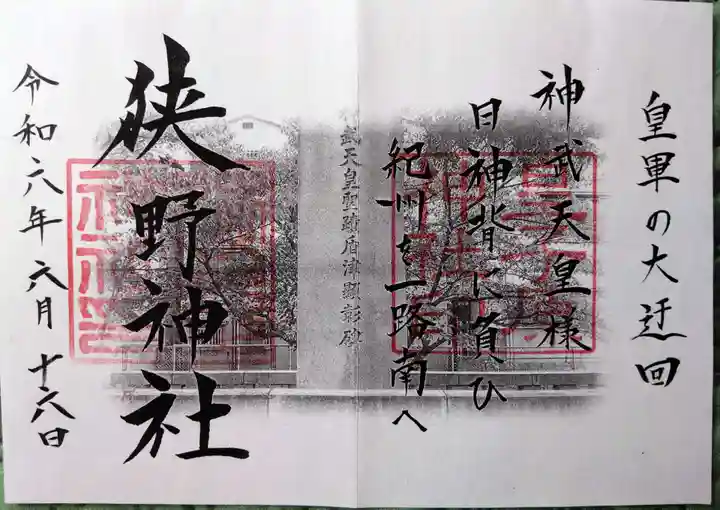 皇軍の大迂回
神武天皇様
日神背に負ひ
紀州を一路南へ
武天皇聖蹟盾津顕彰碑
狭野神社
令和六年六月十六日